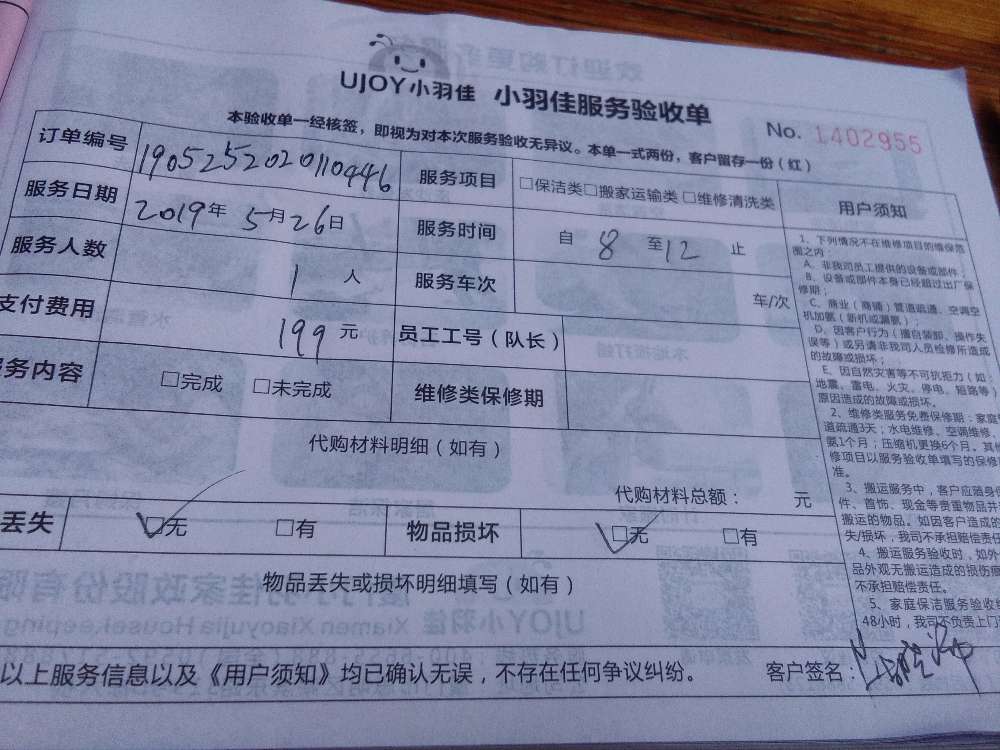 UJOY小羽佳 小羽佳服务验收单
No. 1402955
本验收单一经核签，即视为对本次服务验收无异议。本单一式两份，客户留存一份（红）
订单编号 1905252020110446 服务项目 □保洁类□搬家运输类□维修清洗类 用户须知
服务日期 2019年5月26日 服务时间 自 8 至 12 止
服务人数 1 人 服务车次 车/次
支付费用 199 元 员工工号（队长）
务内容 □完成 □未完成 维修类保修期
代购材料明细（如有）
代购材料总额： 元
丢失 ☑无 □有 物品损坏 ☑无 □有
物品丢失或损坏明细填写（如有）
以上服务信息以及《用户须知》均已确认无误，不存在任何争议纠纷。 客户签名：
1、下列情况不在维修项目的维保范
围之内：
A、非我司员工提供的设备或部件；
B、设备或部件本身已经超过出厂保
修期；
C、商业（商铺）管道疏通、空调空
机加氨（新机或漏氨）；
D、因客户行为（擅自装卸、操作失
误等）或另请非我司人员检修所造成
的故障或损坏；
E、因自然灾害等不可抗拒力（如：
地震、雷电、火灾、停电、短路等）
原因造成的故障或损坏。
2、维修类服务免费保修期：家庭管
道疏通3天；水电维修、空调维修、
氨1个月；压缩机更换6个月。其他
修项目以服务验收单填写的保修
准。
3、搬运服务中，客户应随身
件、首饰、现金等贵重物品并
搬运的物品。如因客户造成的
失/损坏，我司不承担赔偿责任
4、搬运服务验收时，如外
品外观无搬运造成的损伤痕
不承担赔偿责任。
5、家庭保洁服务验收
48小时，我司不负责上门